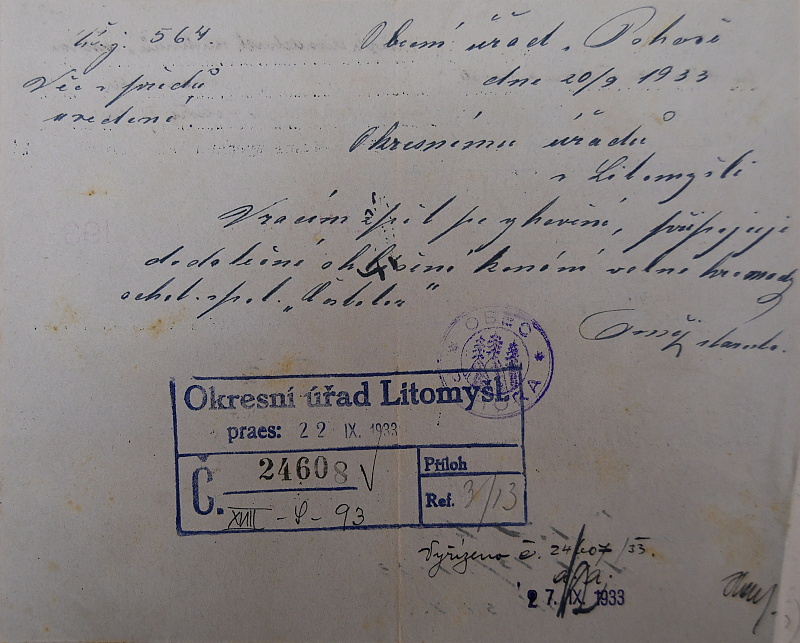 čj. 564.
Obecní úřad, Pohoř
dne 20/9 1933
Věc v předu
uvedená.
Okresnímu úřadu
v Litomyšli
Vracím zpět po vyhovění, připojuji
dodatečné ohlášení konání valné hromady
ochot. spol.
starosta.
OBEC
Okresní úřad Litomyšl.
praes: 22 IX. 1933
Č. 24608
XVIII - 93
Příloh
Ref. 3/13
Vyřízeno č. 24607/33.
a/a.
27. IX. 1933